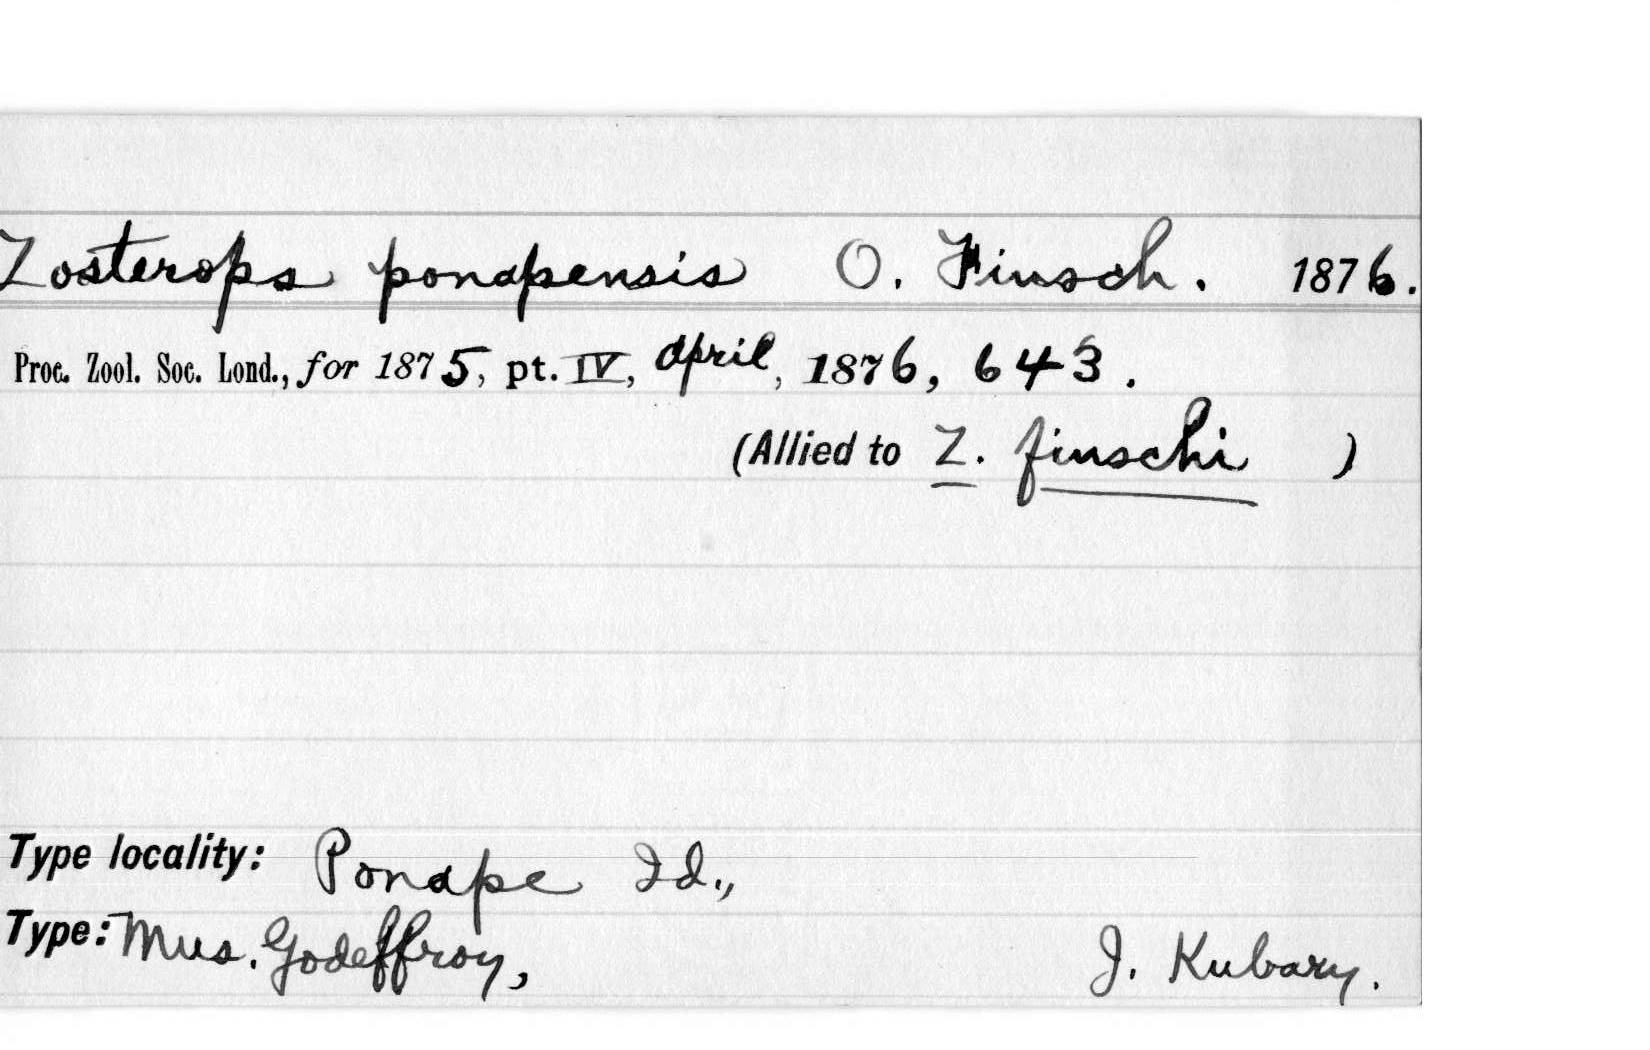 Zosterops ponapensis O. Finsch. 1876.
Proc. Zool. Soc. Lond., for 1875, pt. IV, April, 1876, 643.
(Allied to Z. finschi )
Type locality: Ponape Id.,
Type: Mus. Godeffroy, J. Kubary.